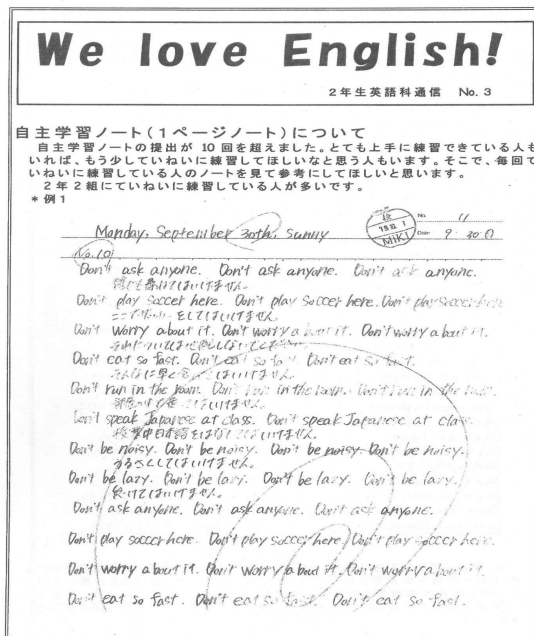 We love English!
2年生英語科通信 No. 3
自主学習ノート(1ページノート)について
自主学習ノートの提出が 10 回を超えました。とても上手に練習できている人も
いれば、もう少していねいに練習してほしいなと思う人もいます。そこで、毎回て
いねいに練習している人のノートを見て参考にしてほしいと思います。
2年2組にていねいに練習している人が多いです。
*例1
No. 11
Monday, September 30th, Sunny
MIKI
Date 9・30・
No.10
Don't ask anyone. Don't ask anyone. Don't ask anyone.
Don't play soccer here. Don't play soccer here. Don't play soccer here
Don't worry about it. Don't worry about it. Don't worry about it.
Don't eat so fast. Don't eat so fast. Don't eat so fast.
Don't run in the room. Don't run in the room. Don't run in the room.
Don't speak Japanese at class. Don't speak Japanese at class.
Don't be noisy. Don't be noisy. Don't be noisy. Don't be noisy.
うるさくしてはいけません。
Don't be lazy. Don't be lazy. Don't be lazy. Don't be lazy.
Don't ask anyone. Don't ask anyone. Don't ask anyone.
Don't play soccer here. Don't play soccer here. Don't play soccer here.
Don't worry about it. Don't worry about it. Don't worry about it.
Don't eat so fast. Don't eat so fast. Don't eat so fast.